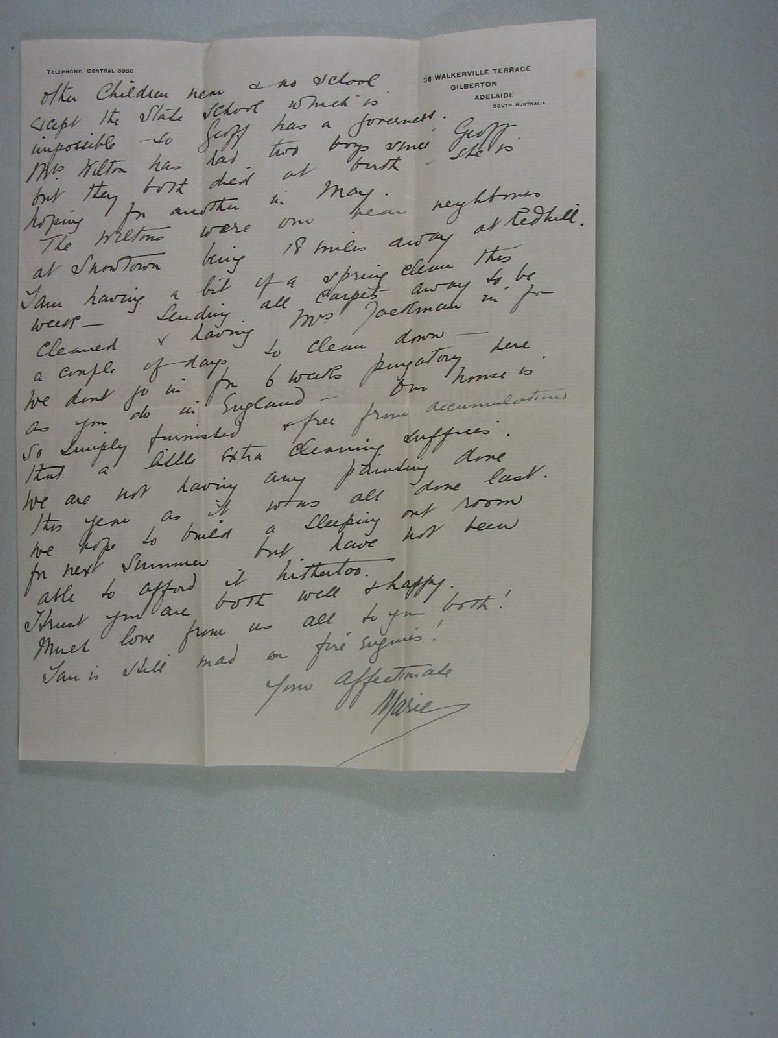 TELEPHONE, CENTRAL 3888
36 WALKERVILLE TERRACE
GILBERTON
ADELAIDE
SOUTH AUSTRALIA
other Children near & no school
except the State School which is
impossible - so Geoff has a governess.
Mrs Wilton has had two boys since Geoff
but they both died at birth - she is
hoping for another in May.
The Wiltons were our near neighbours
at Snowtown being 18 miles away at Redhill.
I am having a bit of a spring clean this
week - Sending all Carpets away to be
Cleaned & having Mrs Jackman in for
a couple of days to clean down -
We dont go in for 6 weeks purgatory here
as you do in England - Our house is
so simply furnished & free from accumulations
that a little extra cleaning suffices.
We are not having any painting done
this year as it was all done last.
We hope to build a sleeping out room
for next Summer but have not been
able to afford it hitherto.
I trust you are both well & happy.
Much love from us all to you both!
Ian is still mad on fire engines!
Your affectionate
Marie